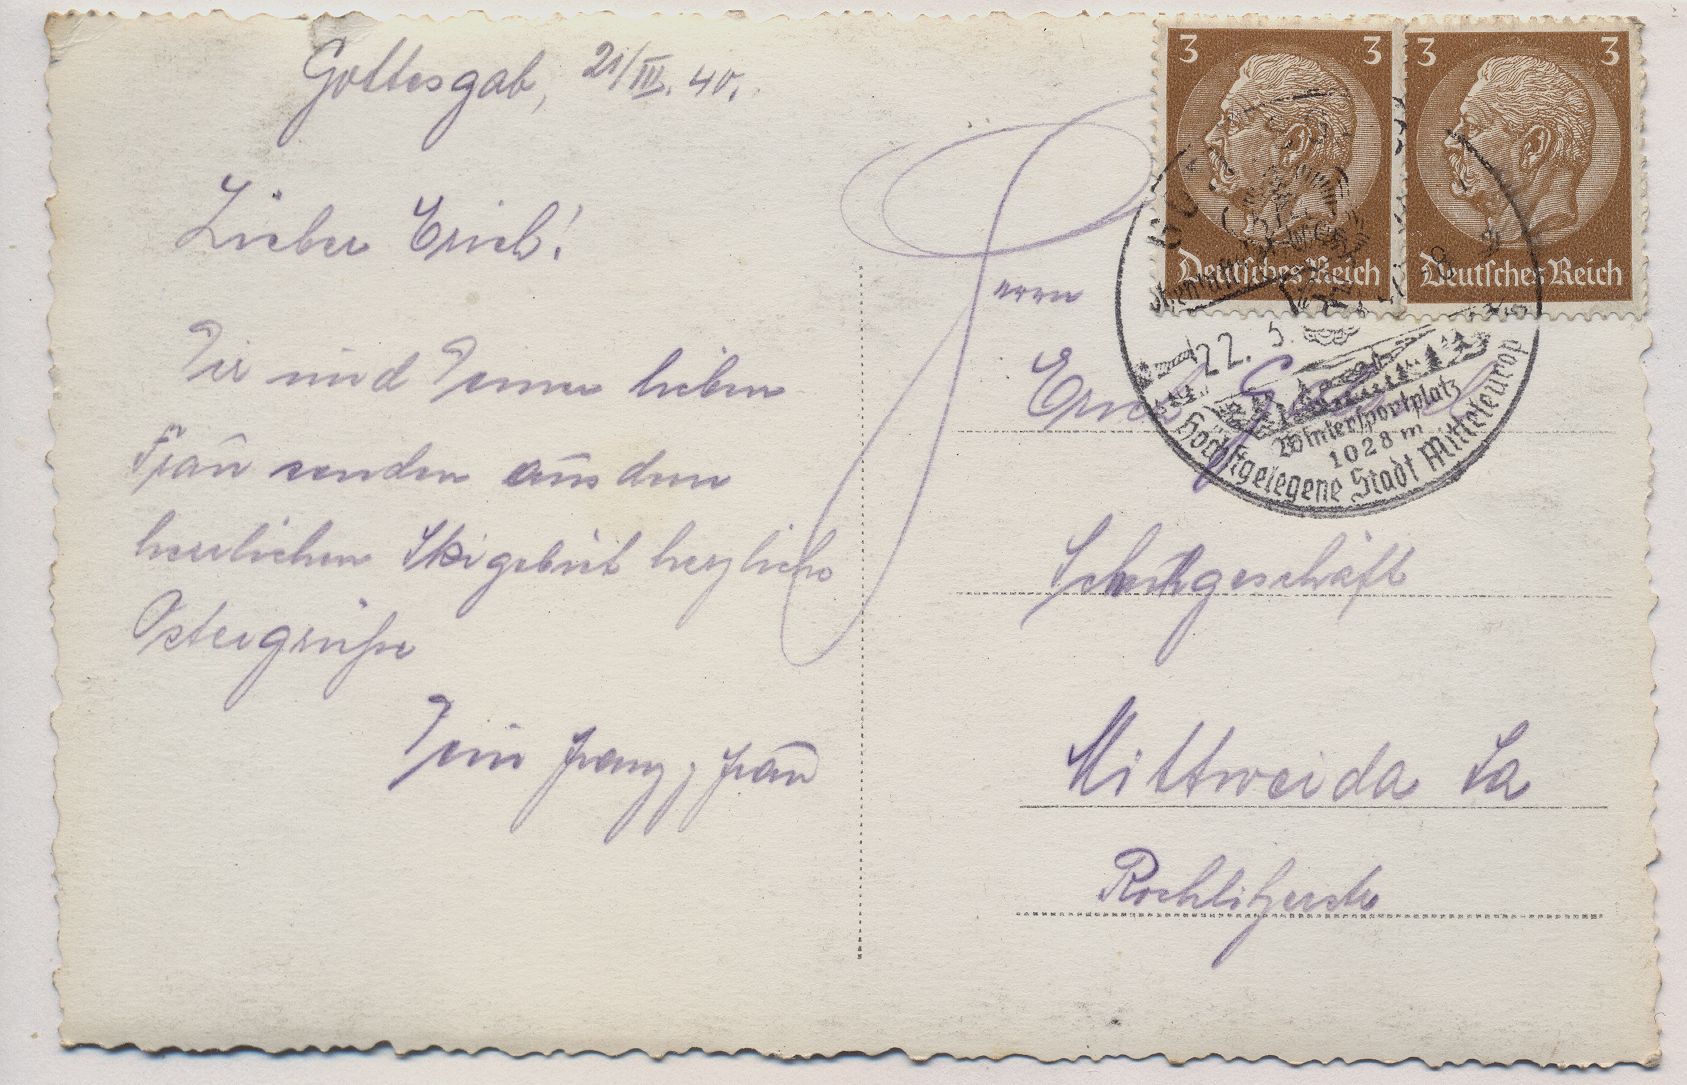 Gottesgab, 21/III. 40.
Lieber Erich!
Dir und Deiner lieben
Frau senden aus dem
herrlichen Skigebiet herzliche
Ostergrüße
Dein Franz, Frau
Herrn
Erich
Schuhgeschäft
Mittweida Sa
Rochlitzerstr
3 3
Deutsches Reich
3 3
Deutsches Reich
22. 3.
Wintersportplatz
1028 m
Höchstgelegene Stadt Mitteleurop